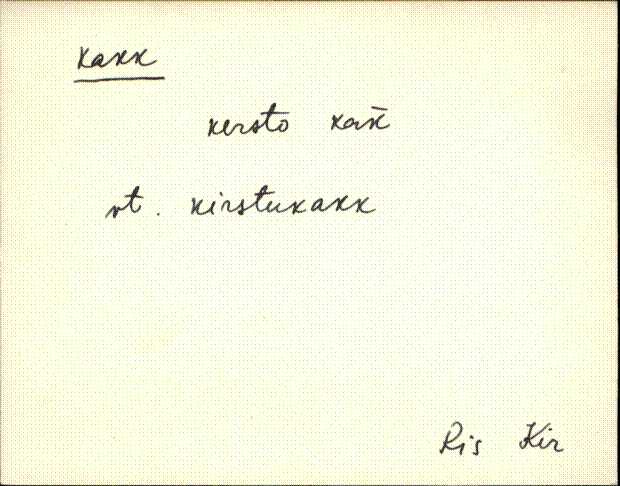 kakk
kersto kak̄
vt. kirstukakk
Ris Kir